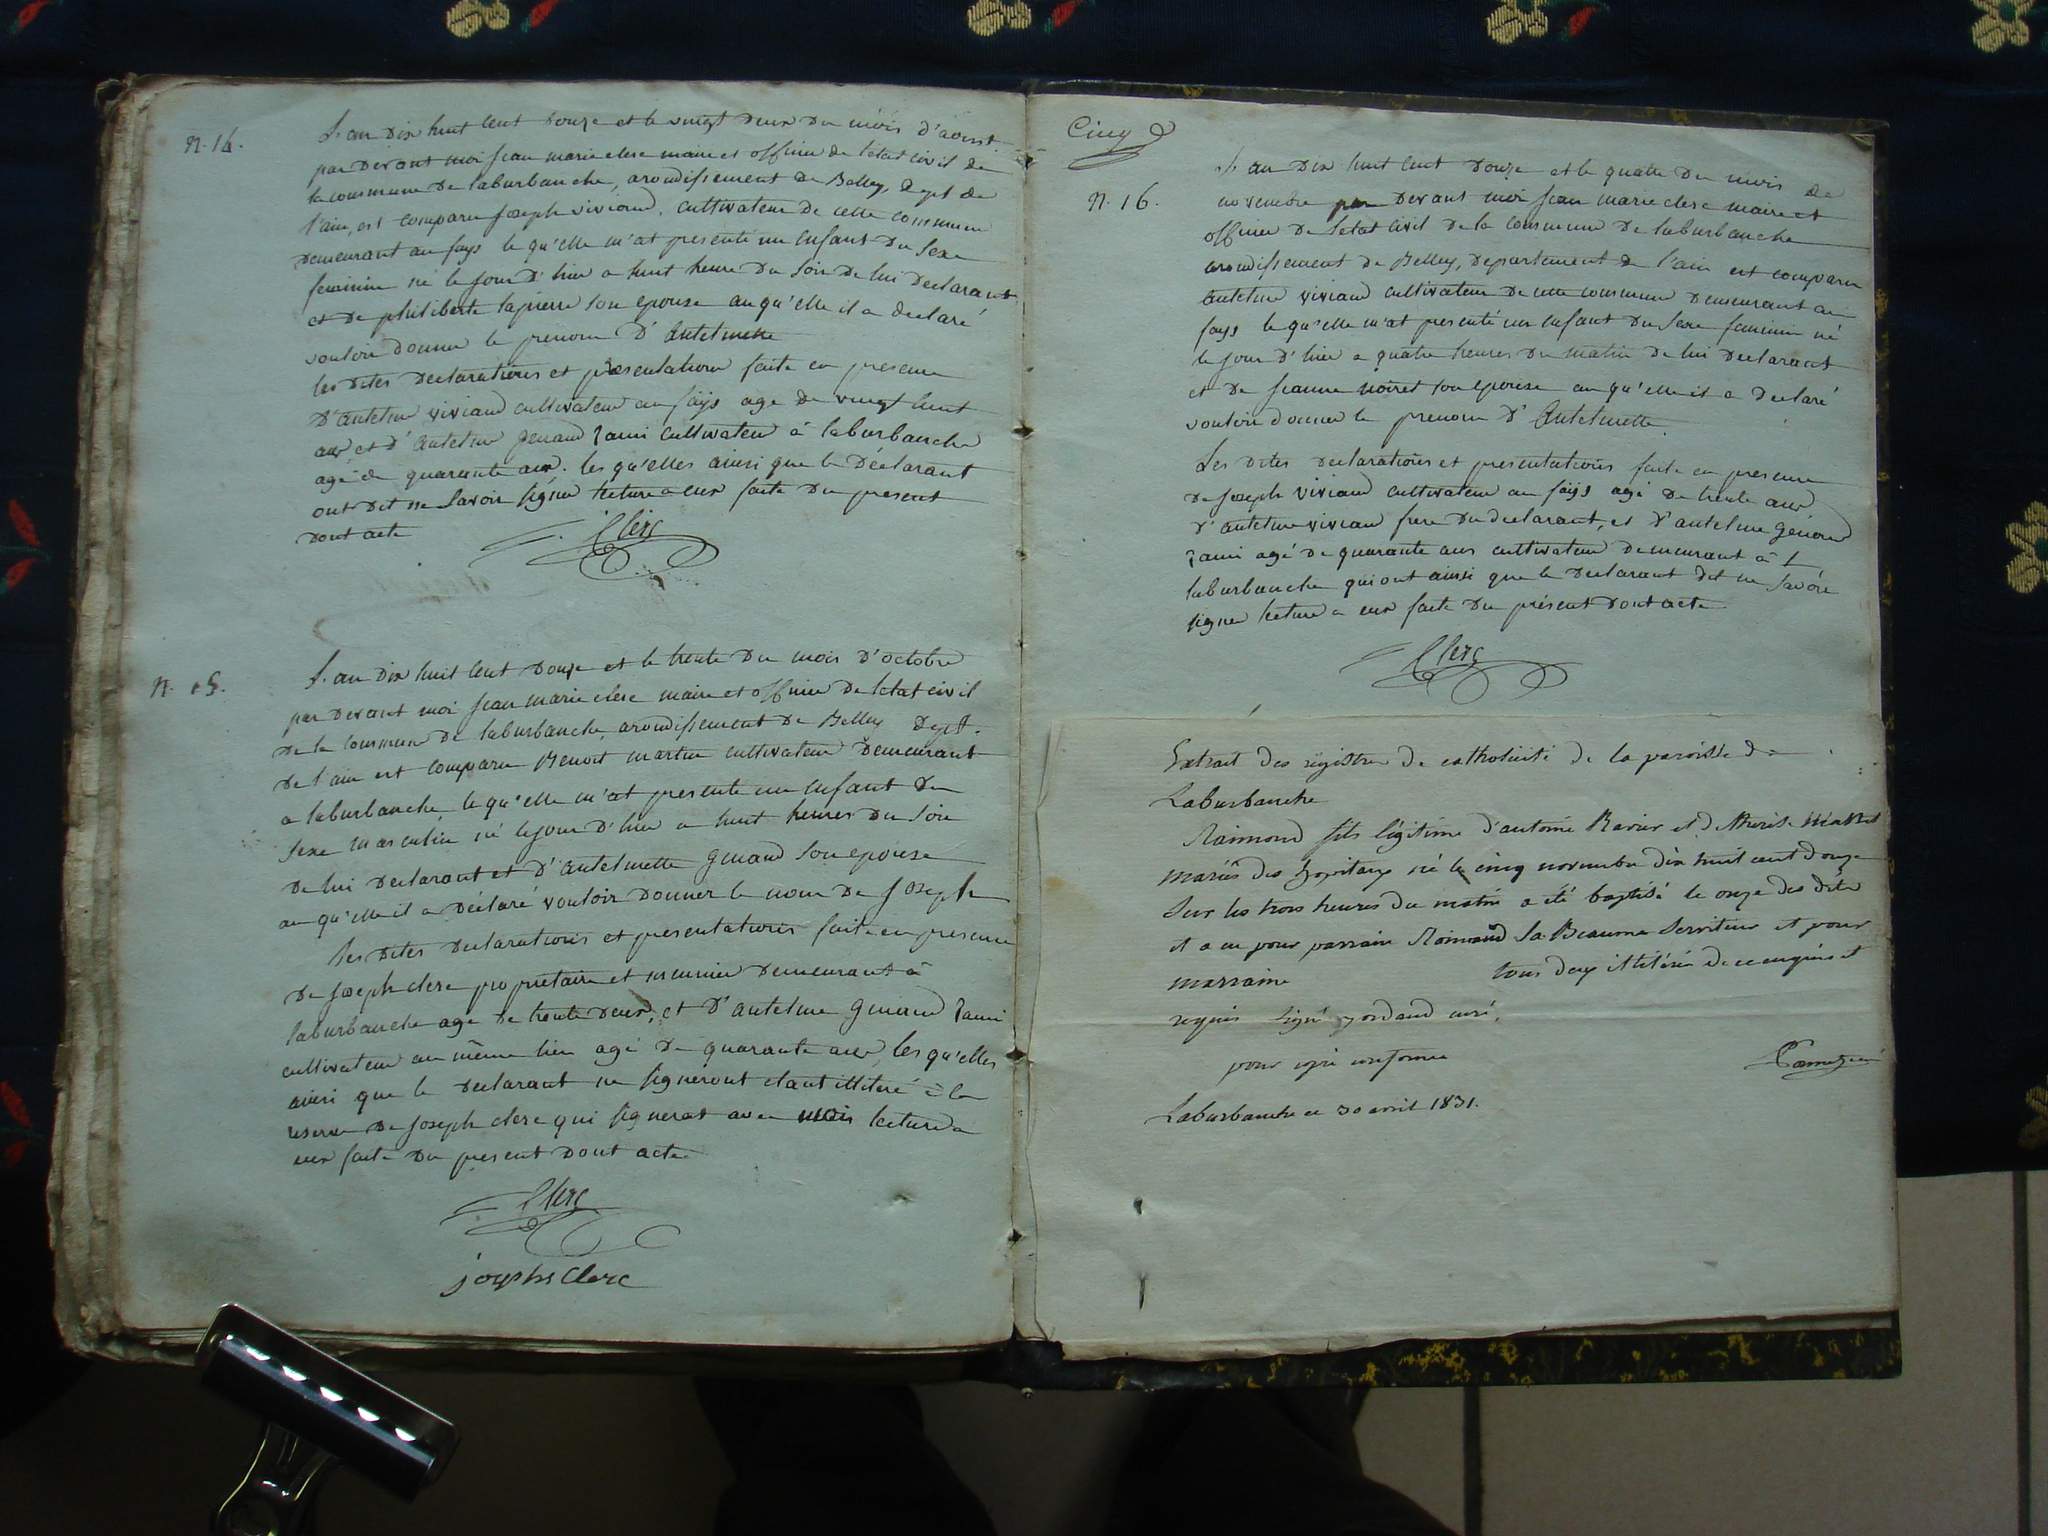 N. 14.
L'an dix huit cent douze et le vingt deux du mois d'aoust
par devant moi jean marie clerc maire et officier de l'etat civil de
la commune de laburbanche, arondissement de Belley, Dept de
l'ain, est comparu joseph viviand, cultivateur de cette commune
demeurant au fays le qu'elle m'at presenté un enfant du sexe
feminin né le jour d'hier a huit heure du soir de lui declarant
et de philiberte lapierre son epouse au qu'elle il a declaré
vouloir donner le prenom d'Antelmette
les dites declarations et presentation faite en presence
d'antelme viviand cultivateur au fays age de vingt huit
ans et d'Antelme genand rami cultivateur à laburbanche
agé de quarante ans. les qu'elles ainsi que le déclarant
ont dit ne savoir signer lecture a eux faite du present
dont acte
Clerc
N. 15.
L'an dix huit cent douze et le trente du mois d'octobre
par devant moi jean marie clerc maire et officier de l'etat civil
de la commune de laburbanche, arondissement de Belley Dept.
de l'ain est comparu Benoit martin cultivateur demeurant
a laburbanche le qu'elle m'at presenté un enfant du
sexe masculin né le jour d'hier a huit heures du soir
de lui declarant et d'antelmette genand son epouse
au qu'elle il a déclaré vouloir donner le nom de joseph
les dites declarations et presentations faite en presence
de joseph clerc propriétaire et meunier demeurant à
laburbanche age de trente deux, et d'antelme genand rami
cultivateur au même lieu agé de quarante ans, les qu'elles
ainsi que le declarant ne signeront etant illiteré à la
reserve de joseph clerc qui signerat avec mois lecture a
eux faite du present dont acte
Clerc
josephs Clerc
Cinq
N. 16.
L'an dix huit cent douze et le quatre du mois de
novembre par devant moi jean marie clerc maire et
officier de l'etat civil de la commune de laburbanche
arondissement de Belley, departement de l'ain est comparu
antelme viviand cultivateur de cette commune demeurant au
fays le qu'elle m'at presenté un enfant du sexe feminin né
le jour d'hier a quatre heures du matin de lui declarant
et de jeanne noiret son epouse au qu'elle il a declaré
vouloir donner le prenom d'Antelmette.
Les dites declarations et presentations faite en presence
de joseph viviand cultivateur au fays agé de trente ans
d'antelme viviand frere du declarant, et d'antelme genand
rami agé de quarante ans cultivateur demeurant à
laburbanche qui ont ainsi que le declarant dit ne savoir
signer lecture a eux faite du présent dont acte.
Clerc
Extrait des registres de catholicité de la paroisse de
Laburbanche
Raimond fils légitime d'antoine Ravier et de therese
mariés des hopitaux né le cinq novembre dix huit cent douze
sur les trois heures du matin a été baptisé le onze des dits
et a eu pour parrain Raimond La Beaume serviteur et pour
marraine tous deux illitérés de ce enquis et
requis signé jordand curé.
pour copie conforme
Laburbanche ce 30 avril 1831.